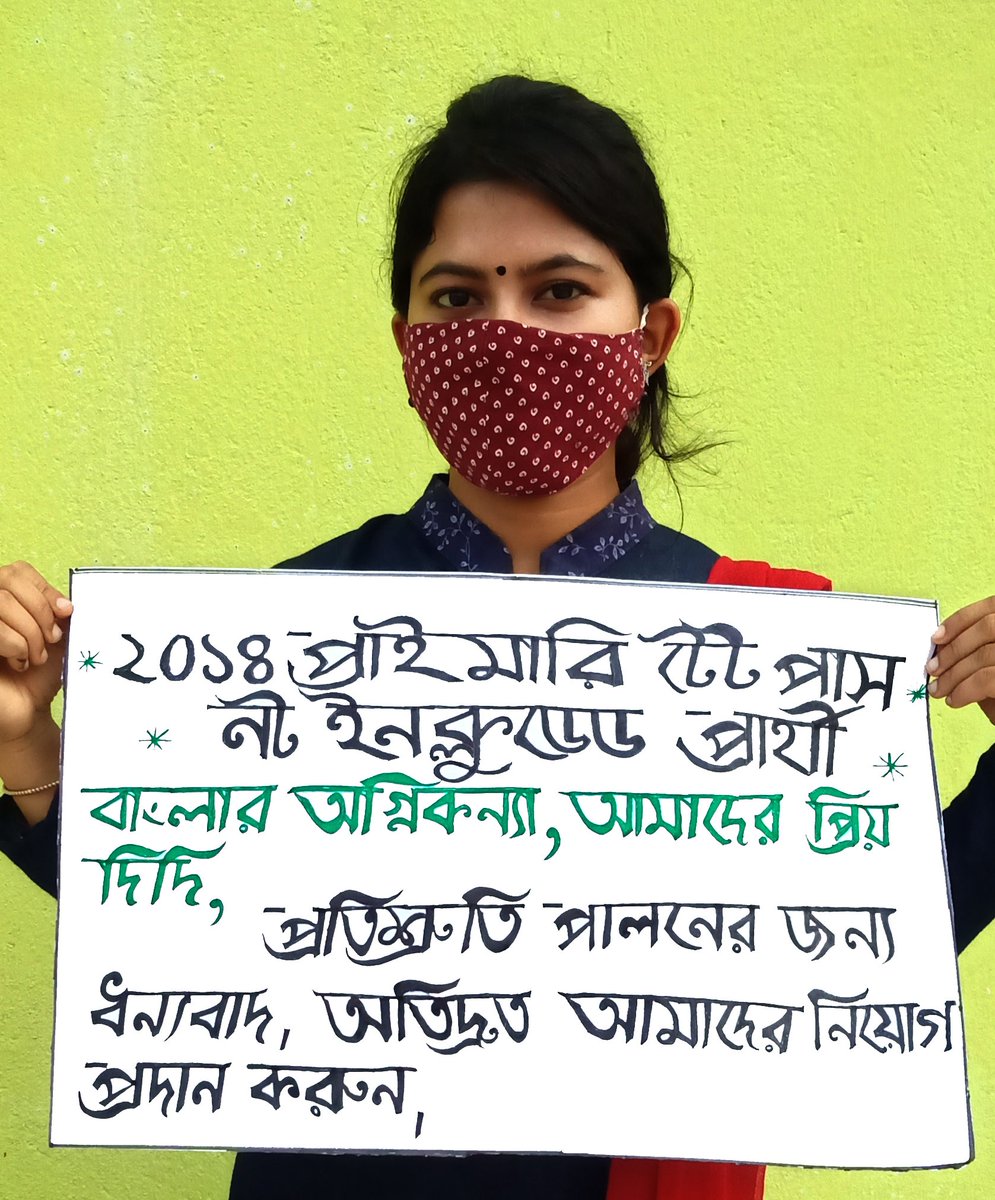 ২০১৪ প্রাইমারি টেট পাস
নট ইনক্লুডেড প্রার্থী
বাংলার অগ্নিকন্যা, আমাদের প্রিয়
দিদি,
প্রতিশ্রুতি পালনের জন্য
ধন্যবাদ, অতিদ্রুত আমাদের নিয়োগ
প্রদান করুন,